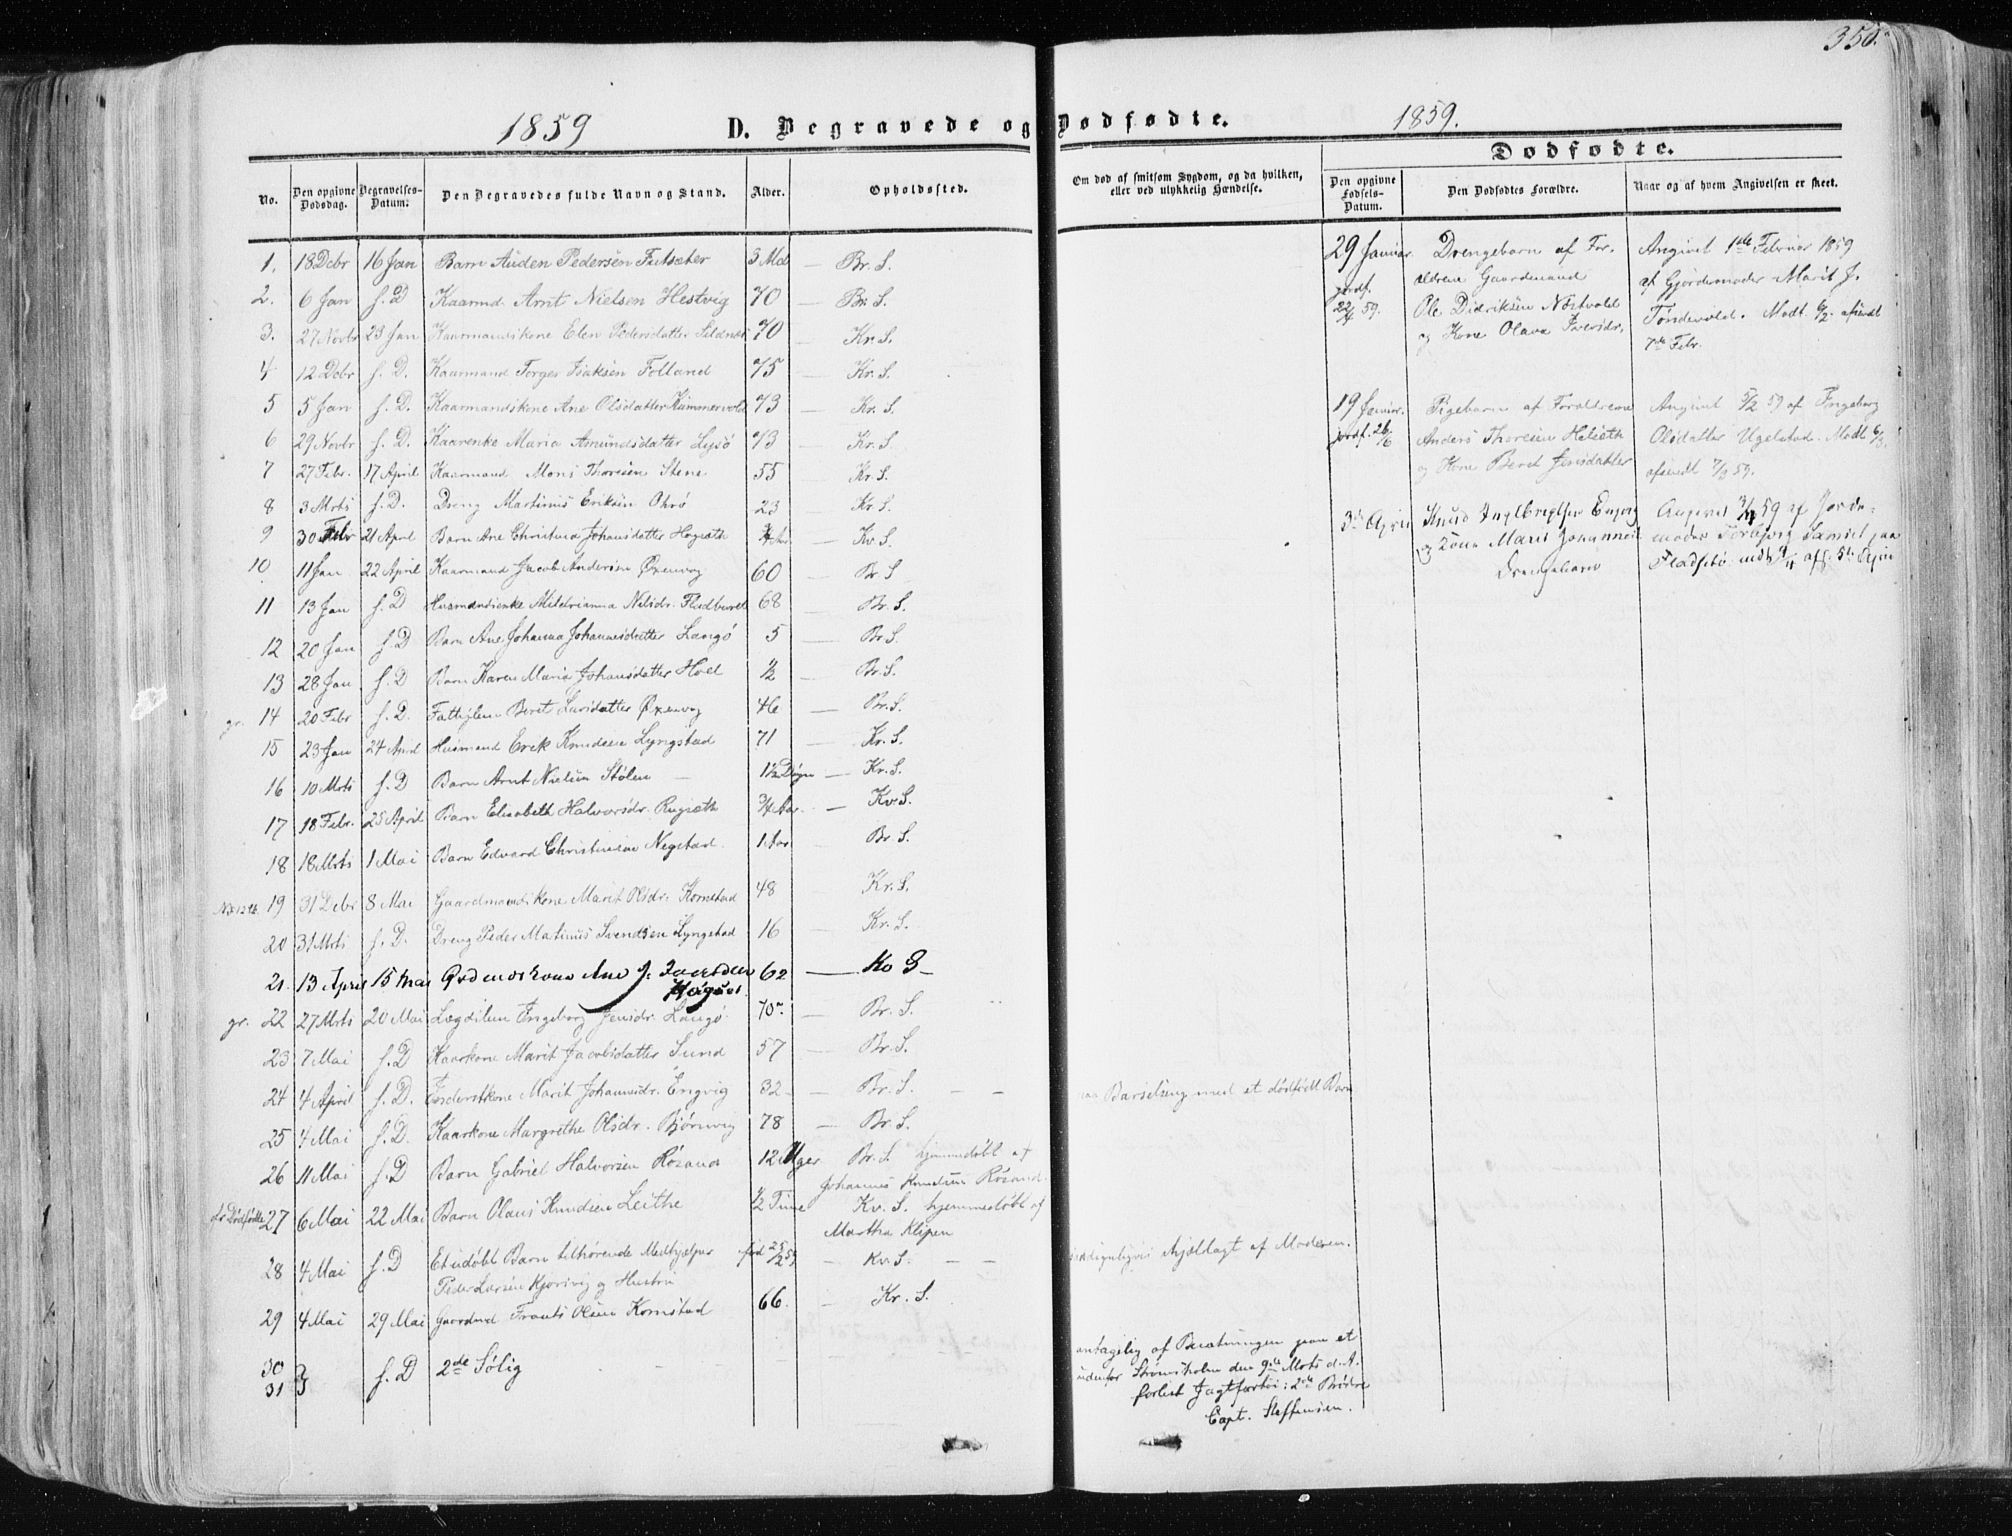 350.
1859
D. Begravede og Dødfødte.
1859.
No.
Den opgivne Dødsdag.
Begravelses-Datum.
Den Begravedes fulde Navn og Stand.
Alder.
Opholdssted.
Om død af smitsom Sygdom, og da hvilken, eller ved ulykkelig Hændelse.
Dødfødte.
Den opgivne Fødsels-Datum.
Den Dødfødtes Forældre.
Naar og af hvem Angivelsen er skeet.
1. 18 Dcbr 16 Jan Barn Auden Pedersen Futsæter 3 Md — Br. S.
2. 6 Jan f. D Kaarmd. Arnt Nielsen Hestvig 70 — Br. S.
3. 27 Novbr 23 Jan Kaarmandskone Elen Pedersdatter Sildnæs 70 — Kr. S.
4 12 Dcbr f. D. Kaarmand Torger Isaksen Folland 75 — Kr. S.
5 5 Jan f. D. Kaarmandskone Ane Olsdatter Kammervold 73 — Kr. S.
6 29 Novbr f. D. Kaarenke Maria Amundsdatter Lysø 73 — Kr. S.
7 27 Febr. 17 April Kaarmand Mons Thoresen Stene 55 — Kr. S.
8 3 Mrts f. D. Dreng Martinus Eriksen Ohrø 23 — Kr. S.
9 30 Febr 21 April Barn Ane Christina Johansdatter Høgsæth Aar — Kv. S.
10 11 Jan 22 April Kaarmand Jacob Andersen Øxenvog 60 — Br. S
11 13 Jan f. D Husmandsenke Mildrianna Nilsdr. 68 — Br. S.
12 20 Jan f. D Barn Ane Johanna Johannesdatter Langø 5 — Br. S.
13 28 Jan f. D Barn Karen Maria Johansdatter Hoel ½ — Br. S.
gr. 14 20 Febr f. D. Fattiglem Beret Larsdatter Øxenvog 46 — Br. S.
15 23 Jan 24 April Husmand Erik Knudsen Lyngstad 71 — Kr. S.
16 10 Mrts f. D Barn Arnt Nielsen Stølen — 1½ Døgn — Kr. S.
17 18 Febr. 25 April Barn Elisabeth Halvorsdr. Rugsæth ¾ Aar — Kv. S.
18 18 Mrts 1 Mai Barn Edvard Christensen Negstad 1 Aar Br. S.
19 31 Dcbr 8 Mai Gaardmandskone Marit Olsdr. Kornstad 48 — Kr. S.
20 31 Mrts f. D. Dreng Peder Matinus Svendsen Lyngstad 16 — Kr. S.
21. 13 April 15 Mai Ane J. 62 — S
gr. 22 27 Mrts 20 Mai Lægdslem Ingeborg Jensdr. Langø 70 — Br. S.
23 7 Mai f. D Kaarkone Marit Jacobsdatter Sund 57 — Br. S.
24 4 April f. D. Foderstkone Marit Johannesdr. Engvig 32 — Br. S. — — paa Barselseng med et dødfødt Barn
25 4 Mai f. D. Kaarkone Margrethe Olsdr. Bjørnvig 78 — Br. S.
26 11 Mai f. D Barn Gabriel Halvorsen Røsand 12 Uger Br. S. hjemmedøbt af
Johannes Knudsen Røsand.
Dødfødte 27 6 Mai 22 Mai Barn Olaus Knudsen Leithe ½ Time Kv. S. hjemmedøbt af
Martha Klipen
28 4 Mai f. D Et udøbt Barn tilhørende Medhjælper fød 25/2 59 — Kv. S. — — ihjellagt af Moderen.
Peder Larsen og Hustru
29 4 Mai 29 Mai Gaardmd Frants Olsen Kornstad 66. — Kr. S.
30
31 f. D 2de Sølig
antagelig af Besætningen paa et
udenfor Strømsholm den 9de Mrts d. A.
forlist Jagtfartøi: 2de Brødre
Capt. Steffensen.
29 Januar
jordf.
22/4 59.
Drengebarn af For-
ældrene Gaardmand
Ole Didriksen Næstvold
og Kone Olava Iversdr.
Angivet 1ste Februar 1859
af Gjordemoder Marit J.
Tøndevold. Modt. 6/2. afsendt
7de Febr.
19 Januar.
jordf. 26/6
Pigebarn af Forældrene
Anders Thoresen
og Kone Beret Jensdatter
Angivet 5/2 59 af Ingeborg
Olsdatter Ugelstad. Modt 6/3.
afsendt 7/3 59.
3de April
Knud Ingebregtsen
og Kone Marit
Drengebarn
Angivet 3/4 59 af Jorde-
moder